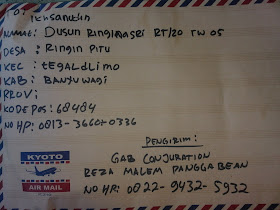 To:
Ikhsanudin
NAMAT: DUSUN RINGINASRI RT/20 RW 05
DESA : RINGIN PITU
KEC : TEGALDLIMO
KAB : BANYUWAGI
PROV:
KODE POS: 68484
NO HP: 0813-3660-0336
PENGIRIM:
GAB CONJURATION
REZA MALEM PANGGABEAN
NO HP: 0822-9432-5932
KYOTO
AIR MAIL